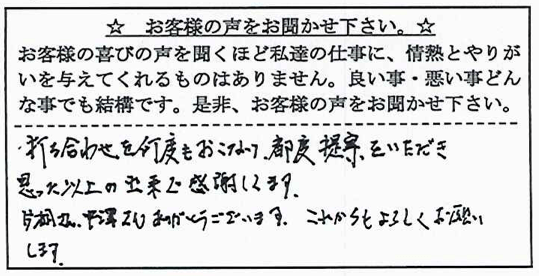 ☆ お客様の声をお聞かせ下さい。☆
お客様の喜びの声を聞くほど私達の仕事に、情熱とやりが
いを与えてくれるものはありません。良い事・悪い事どん
な事でも結構です。是非、お客様の声をお聞かせ下さい。
・打ち合わせを何度もおこなって、都度提案をいただき
思った以上の出来で感謝してます。
中澤さんありがとうございます。これからもよろしくお願い
します。